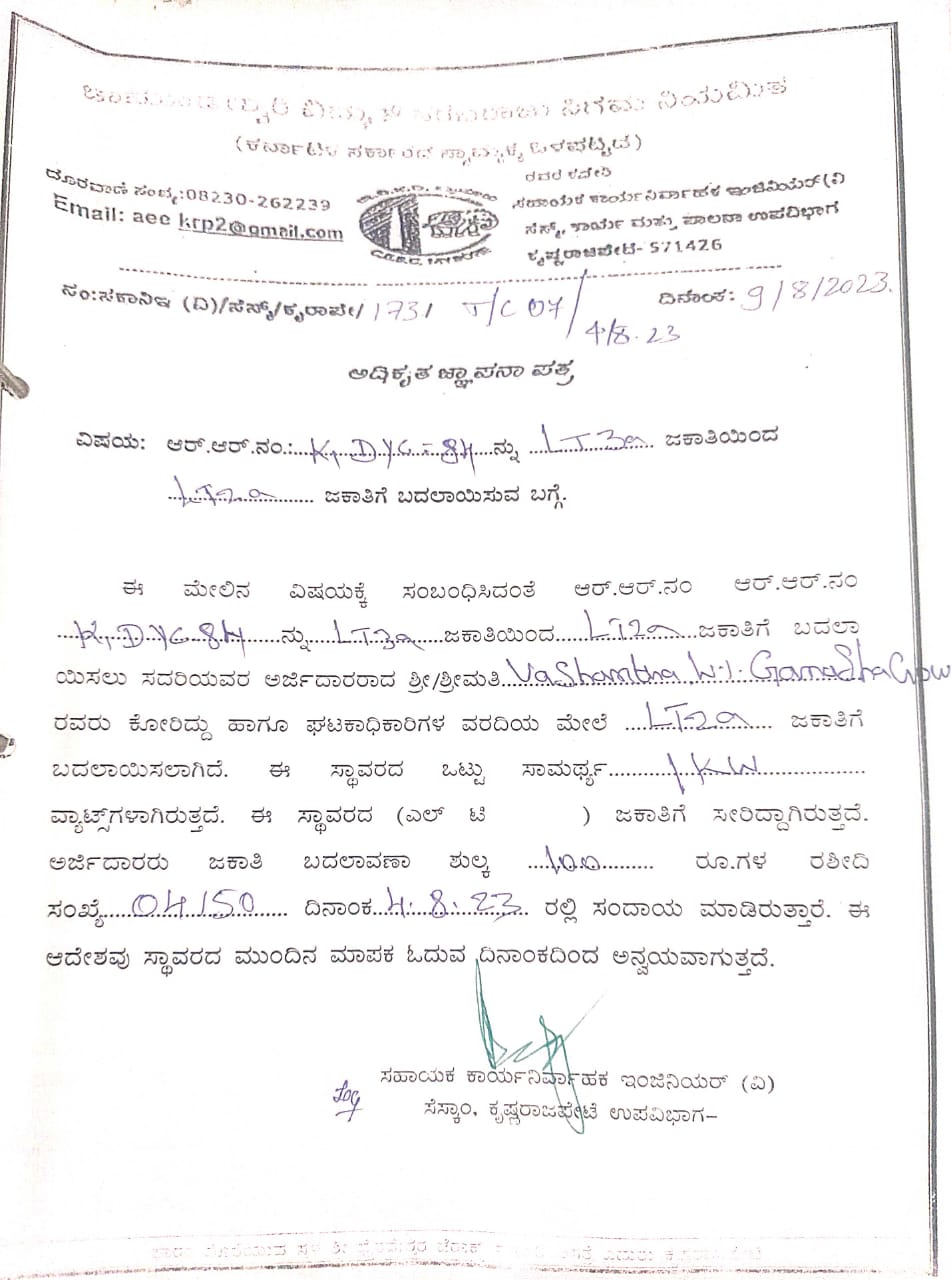 ಚಾಮುಂಡೇಶ್ವರಿ ವಿದ್ಯುತ್ ಸರಬರಾಜು ನಿಗಮ ನಿಯಮಿತ
(ಕರ್ನಾಟಕ ಸರ್ಕಾರದ ಸ್ವಾಮ್ಯಕ್ಕೆ ಒಳಪಟ್ಟಿದೆ)
ದೂರವಾಣಿ ಸಂಖ್ಯೆ:08230-262239
Email: aee krp2@gmail.com
ರವರ ಕಚೇರಿ
ಸಹಾಯಕ ಕಾರ್ಯನಿರ್ವಾಹಕ ಇಂಜಿನಿಯರ್(ವಿ
ಸೆಸ್ಕ್, ಕಾರ್ಯ ಮತ್ತು ಪಾಲನಾ ಉಪವಿಭಾಗ
ಕೃಷ್ಣರಾಜಪೇಟೆ- 571426
ಸಂ:ಸಕಾನಿಇ (ವಿ)/ಸೆಸ್ಕ್/ಕೃರಾಪೇ/ 1731 T/C 07/
4/8.23
ದಿನಾಂಕ: 9/8/2023.
ಅಧಿಕೃತ ಜ್ಞಾಪನಾ ಪತ್ರ
ವಿಷಯ: ಆರ್.ಆರ್.ನಂ.:...ನ್ನು ...LT3a... ಜಕಾತಿಯಿಂದ
...LT2a... ಜಕಾತಿಗೆ ಬದಲಾಯಿಸುವ ಬಗ್ಗೆ.
ಈ ಮೇಲಿನ ವಿಷಯಕ್ಕೆ ಸಂಬಂಧಿಸಿದಂತೆ ಆರ್.ಆರ್.ನಂ ಆರ್.ಆರ್.ನಂ
...ನ್ನು...LT3a...ಜಕಾತಿಯಿಂದ...LT2a...ಜಕಾತಿಗೆ ಬದಲಾ
ಯಿಸಲು ಸದರಿಯವರ ಅರ್ಜಿದಾರರಾದ ಶ್ರೀ/ಶ್ರೀಮತಿ...
ರವರು ಕೋರಿದ್ದು ಹಾಗೂ ಘಟಕಾಧಿಕಾರಿಗಳ ವರದಿಯ ಮೇಲೆ ...LT2a... ಜಕಾತಿಗೆ
ಬದಲಾಯಿಸಲಾಗಿದೆ. ಈ ಸ್ಥಾವರದ ಒಟ್ಟು ಸಾಮರ್ಥ್ಯ...1KW...
ವ್ಯಾಟ್ಸ್‌ಗಳಾಗಿರುತ್ತದೆ. ಈ ಸ್ಥಾವರದ (ಎಲ್ ಟಿ ) ಜಕಾತಿಗೆ ಸೇರಿದ್ದಾಗಿರುತ್ತದೆ.
ಅರ್ಜಿದಾರರು ಜಕಾತಿ ಬದಲಾವಣಾ ಶುಲ್ಕ ...100... ರೂ.ಗಳ ರಶೀದಿ
ಸಂಖ್ಯೆ...04150... ದಿನಾಂಕ...4.8.23... ರಲ್ಲಿ ಸಂದಾಯ ಮಾಡಿರುತ್ತಾರೆ. ಈ
ಆದೇಶವು ಸ್ಥಾವರದ ಮುಂದಿನ ಮಾಪಕ ಓದುವ ದಿನಾಂಕದಿಂದ ಅನ್ವಯವಾಗುತ್ತದೆ.
ಸಹಾಯಕ ಕಾರ್ಯನಿರ್ವಾಹಕ ಇಂಜಿನಿಯರ್ (ವಿ)
ಸೆಸ್ಕಾಂ, ಕೃಷ್ಣರಾಜಪೇಟೆ ಉಪವಿಭಾಗ–